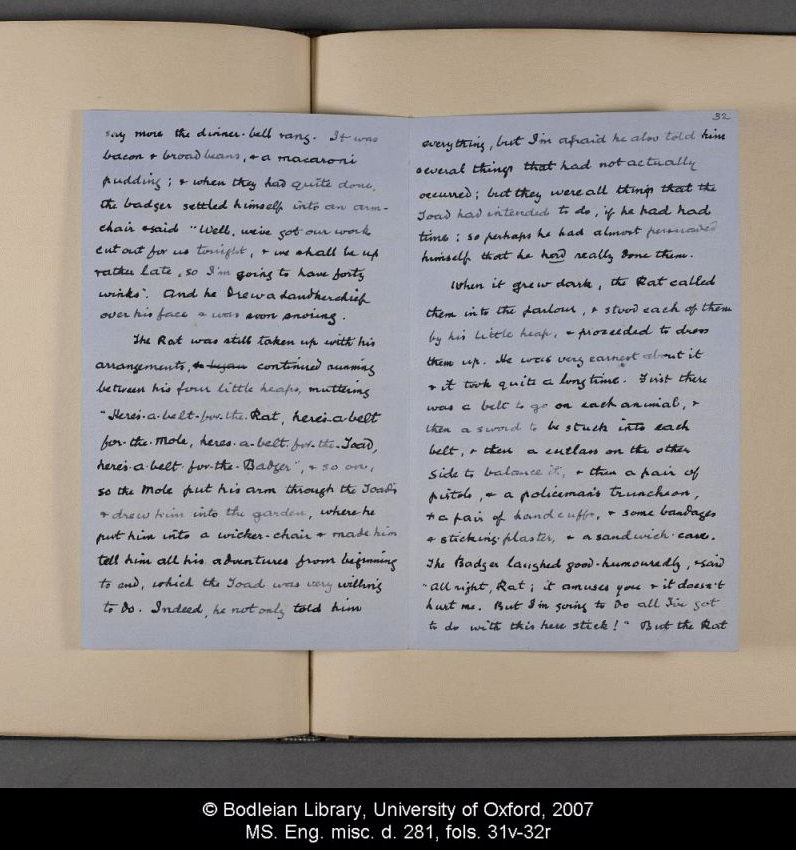 say more the dinner-bell rang. It was
bacon & broad beans, & a macaroni
pudding; & when they had quite done,
the badger settled himself into an arm-
chair & said "Well, we've got our work
cut out for us tonight, & we shall be up
rather late, so I'm going to have forty
winks". And he drew a handkerchief
over his face & was soon snoring.
The Rat was still taken up with his
arrangements, & began continued running
between his four little heaps, muttering
"Here's-a-belt-for-the-Rat, here's-a-belt
for-the-Mole, heres-a-belt-for-the-Toad,
here's-a-belt-for-the-Badger", & so on,
so the Mole put his arm through the Toad's
& drew him into the garden, where he
put him into a wicker-chair & made him
tell him all his adventures from beginning
to end, which the Toad was very willing
to do. Indeed, he not only told him
32
everything, but I'm afraid he also told him
several things that had not actually
occurred; but they were all things that the
Toad had intended to do, if he had had
time; so perhaps he had almost persuaded
himself that he had really done them.
When it grew dark, the Rat called
them into the parlour, & stood each of them
by his little heap, & proceeded to dress
them up. He was very earnest about it
& it took quite a long time. First there
was a belt to go on each animal, &
then a sword to be stuck into each
belt, & then a cutlass on the other
side to balance it, & then a pair of
pistols, & a policeman's truncheon,
& a pair of handcuffs, & some bandages
& sticking-plaster, & a sandwich-case.
The Badger laughed good-humouredly, & said
"all right, Rat; it amuses you & it doesn't
hurt me. But I'm going to do all I've got
to do with this here stick!" But the Rat
© Bodleian Library, University of Oxford, 2007
MS. Eng. misc. d. 281, fols. 31v-32r